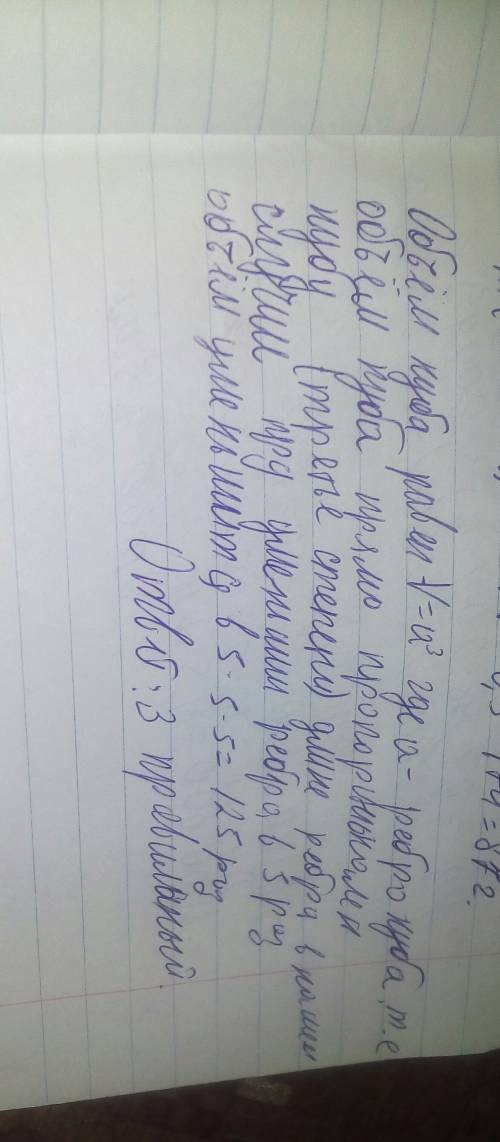 = 87 г.
Объём куба равен V=a³ где a- ребро куба, т.е
объём куба прямо пропорцианален
кубу (третье степени) длине ребра в нашем
случии при уменьшии ребра в 5 раз
объём уменьшится в 5·5·5= 125 раз
Ответ: 3 правильный.